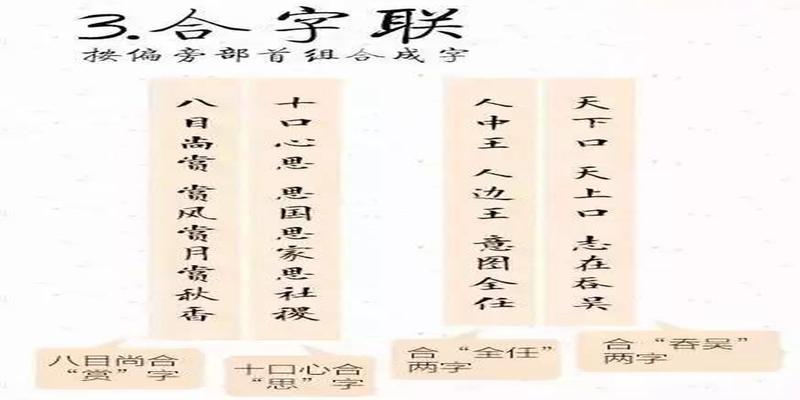 3.合字联
按偏旁部首组合成字
十口心思 思国思家思社稷
八目尚赏 赏风赏月赏秋香
天下口 天上口 志在吞吴
人中王 人边王 意图全任
八目尚合
“赏”字
十口心合
“思”字
合“全任”
两字
合“吞吴”
两字